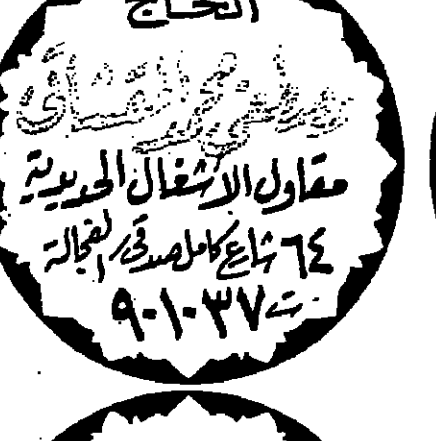 الحاج
محمد
مقاول الأشغال الحديدية
٦٤ شارع كامل صدقى / الفجالة
ت ٩٠١٠٣٧